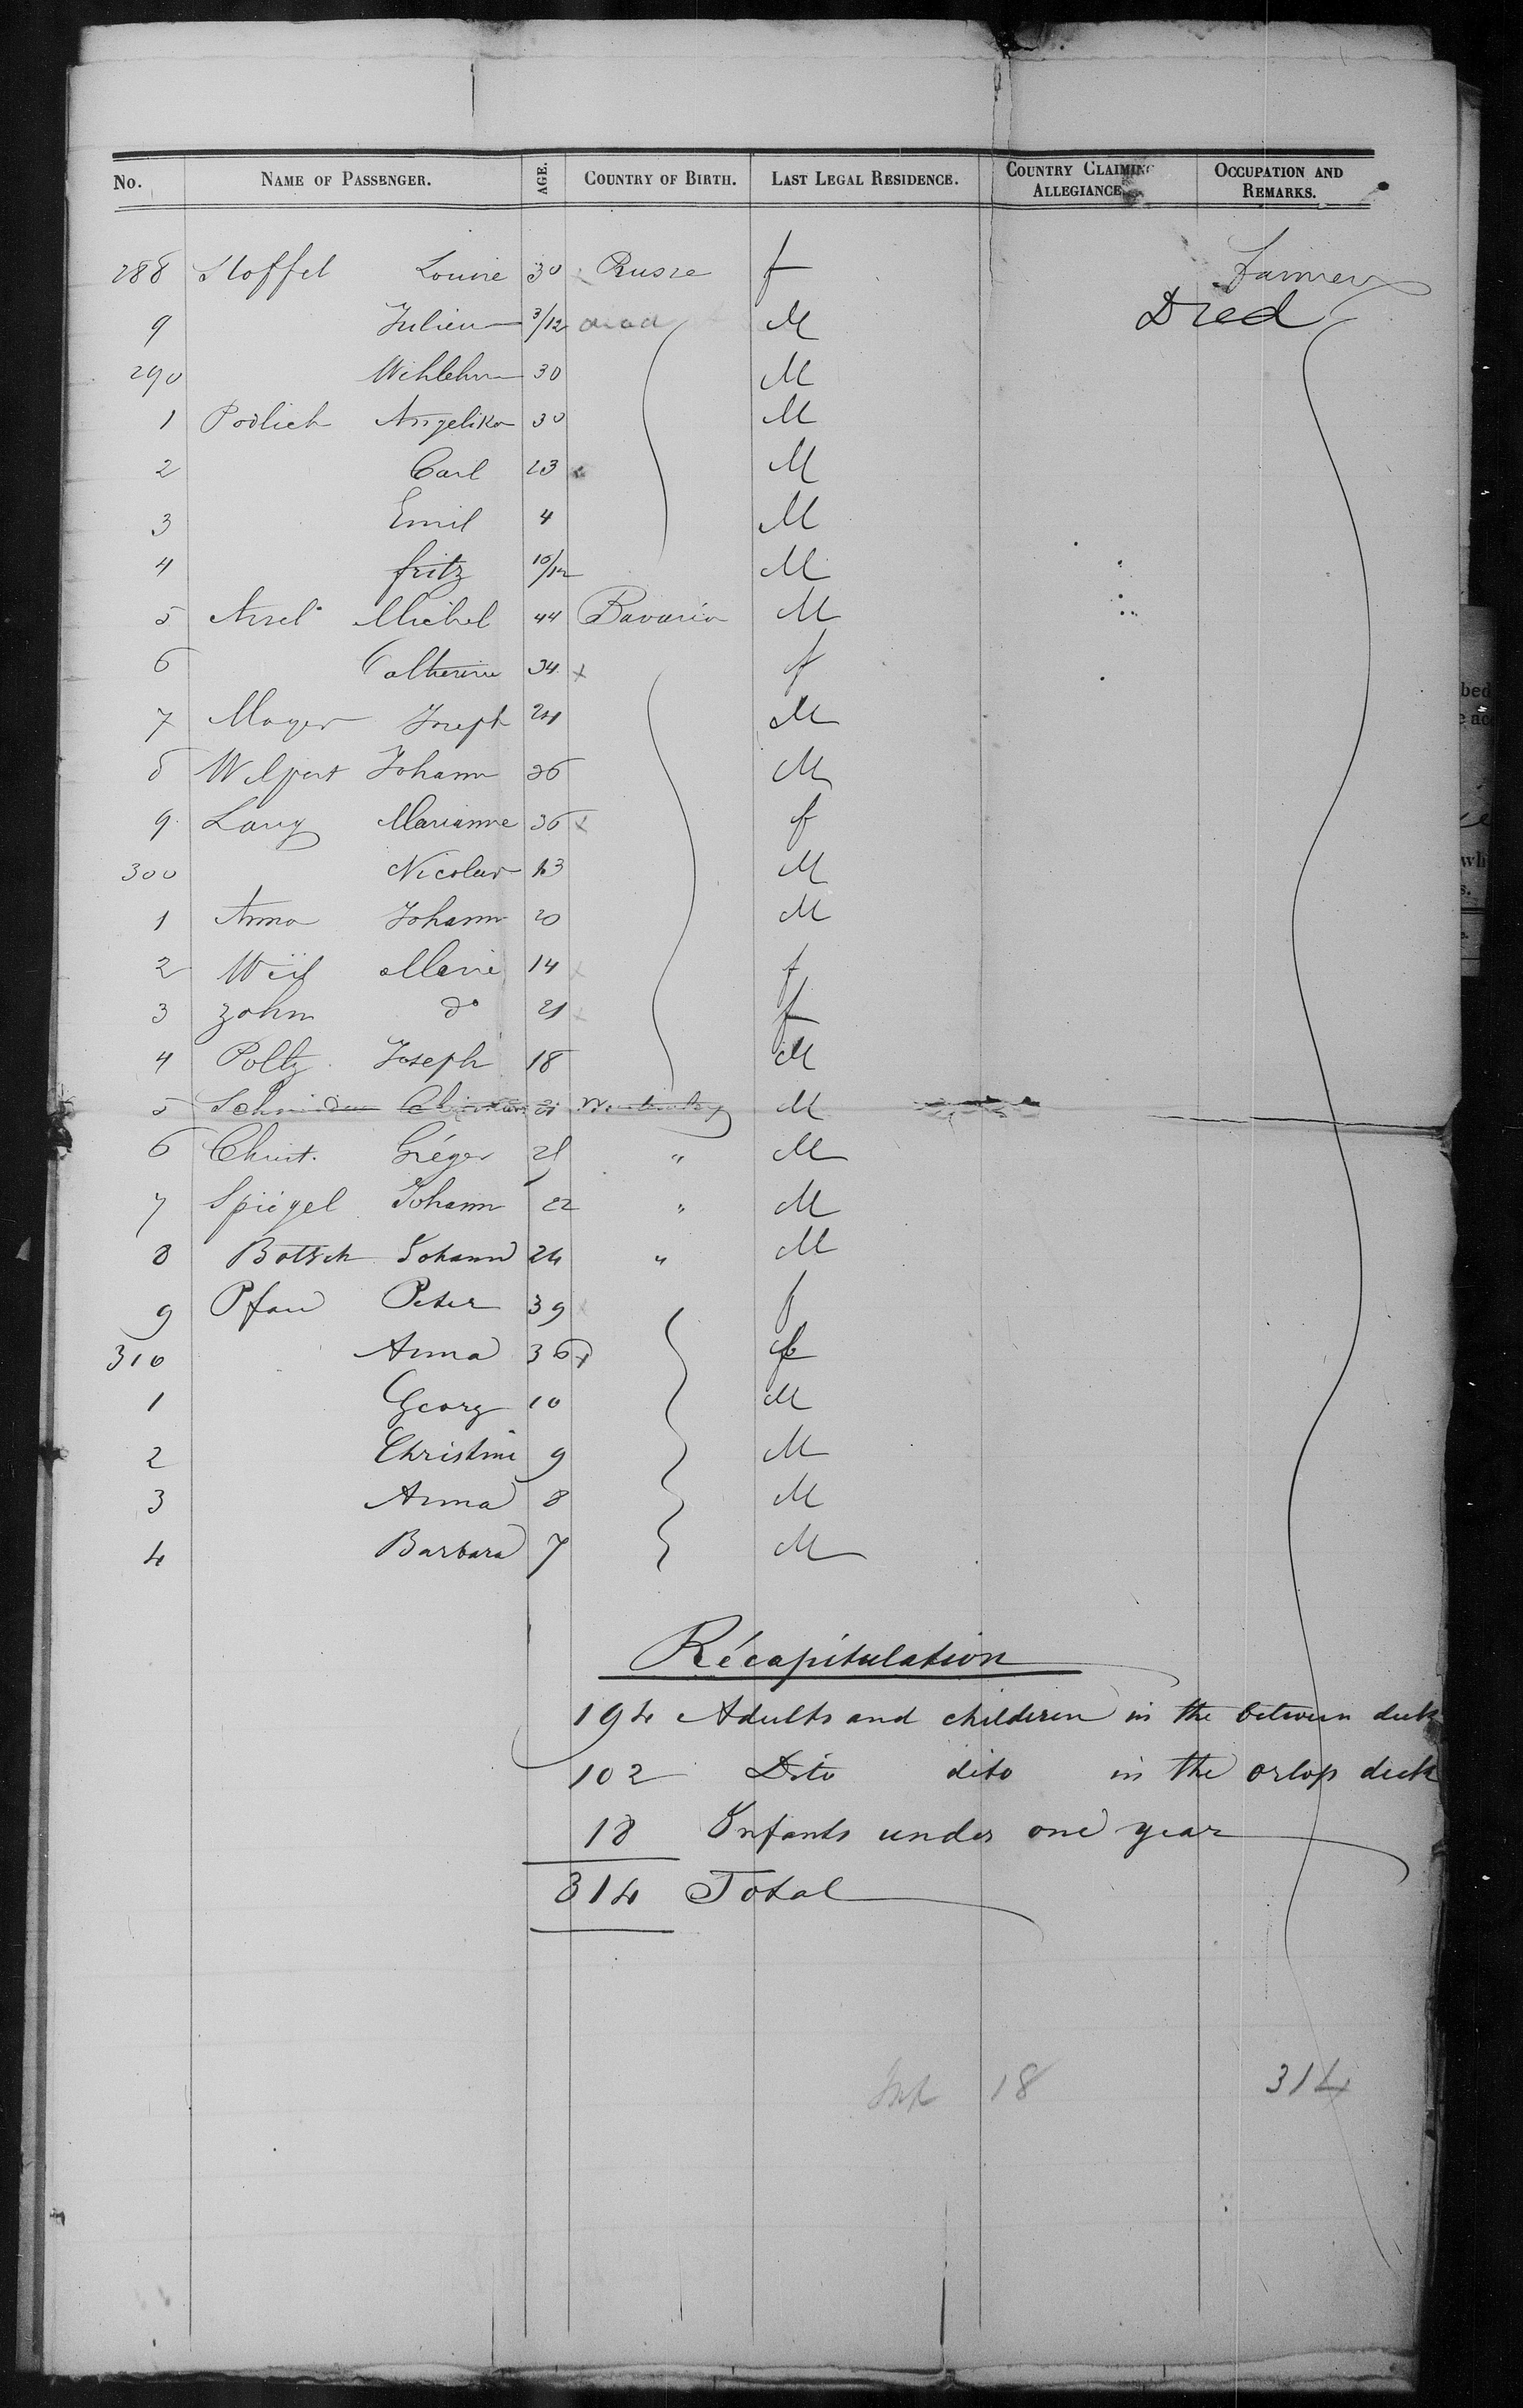 No. NAME OF PASSENGER. AGE. COUNTRY OF BIRTH. LAST LEGAL RESIDENCE. COUNTRY CLAIMING ALLEGIANCE. OCCUPATION AND REMARKS.
288 Stoffel Louise 30 x f
9 Julien 3/12 dead M Died
290 Wihlehm 30 M
1 Podlich Angelika 30 M
2 Carl 23 M
3 Emil 4 M
4 fritz 10/12 M
5 Michel 44 Bavaria M
6 Catherine 34 x f
7 Mayer Joseph 24 M
8 Wilpert Johann 36 M
9 Lang Marianne 36 x f
300 Nicolas 13 M
1 Anna Johann 20 M
2 Marie 14 x f
3 Zohm do 21 x f
4 Poltz Joseph 18 M
5 M
6 Christ. Gréger 21 " M
7 Spiegel Johann 22 " M
8 Botsch Johann 24 " M
9 Pfau Peter 39 x f
310 Anna 36 x f
1 Georg 10 M
2 Christine 9 M
3 Anna 8 M
4 Barbara 7 M
Récapitulation
194 Adults and childeren in the between deck
102 Dito dito in the orlop deck
18 Infants under one year
314 Total
Inf 18 314
bed
wh
s.